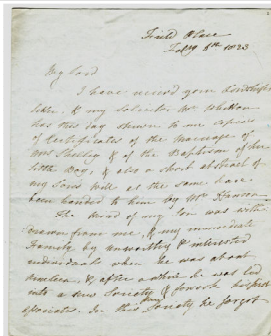 Field Place
Feby 6th 1823
My Lord
I have received your Lordship's
letter. & my Solicitor Mr Whitton
has this day shown to me copies
of Certificates of the Marriage of
Mrs Shelley & of the Baptism of her
little Boy, & also a short abstract of
my Sons Will as the same have
been handed to him by Mr Hanson.
The mind of my Son was with
drawn from me, & my immediate
Family by unworthy & interested
individuals when he was about
Nineteen, & after a while he was led
into a new Society & forsook his first
associates. In this new Society he forgot